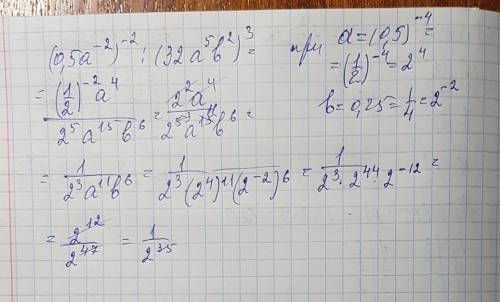 (0,5a⁻²)⁻² : (32a⁵b²)³ = при a = (0,5)⁻⁴ =
= (1/2)⁻⁴ = 2⁴
= (1/2)⁻²a⁴ / 2⁵a¹⁵b⁶ = 2²a⁴ / 2⁵a¹⁵b⁶ =
b = 0,25 = 1/4 = 2⁻²
= 1 / 2³a¹¹b⁶ = 1 / 2³(2⁴)¹¹(2⁻²)⁶ = 1 / 2³·2⁴⁴·2⁻¹² =
= 2¹² / 2⁴⁷ = 1 / 2³⁵